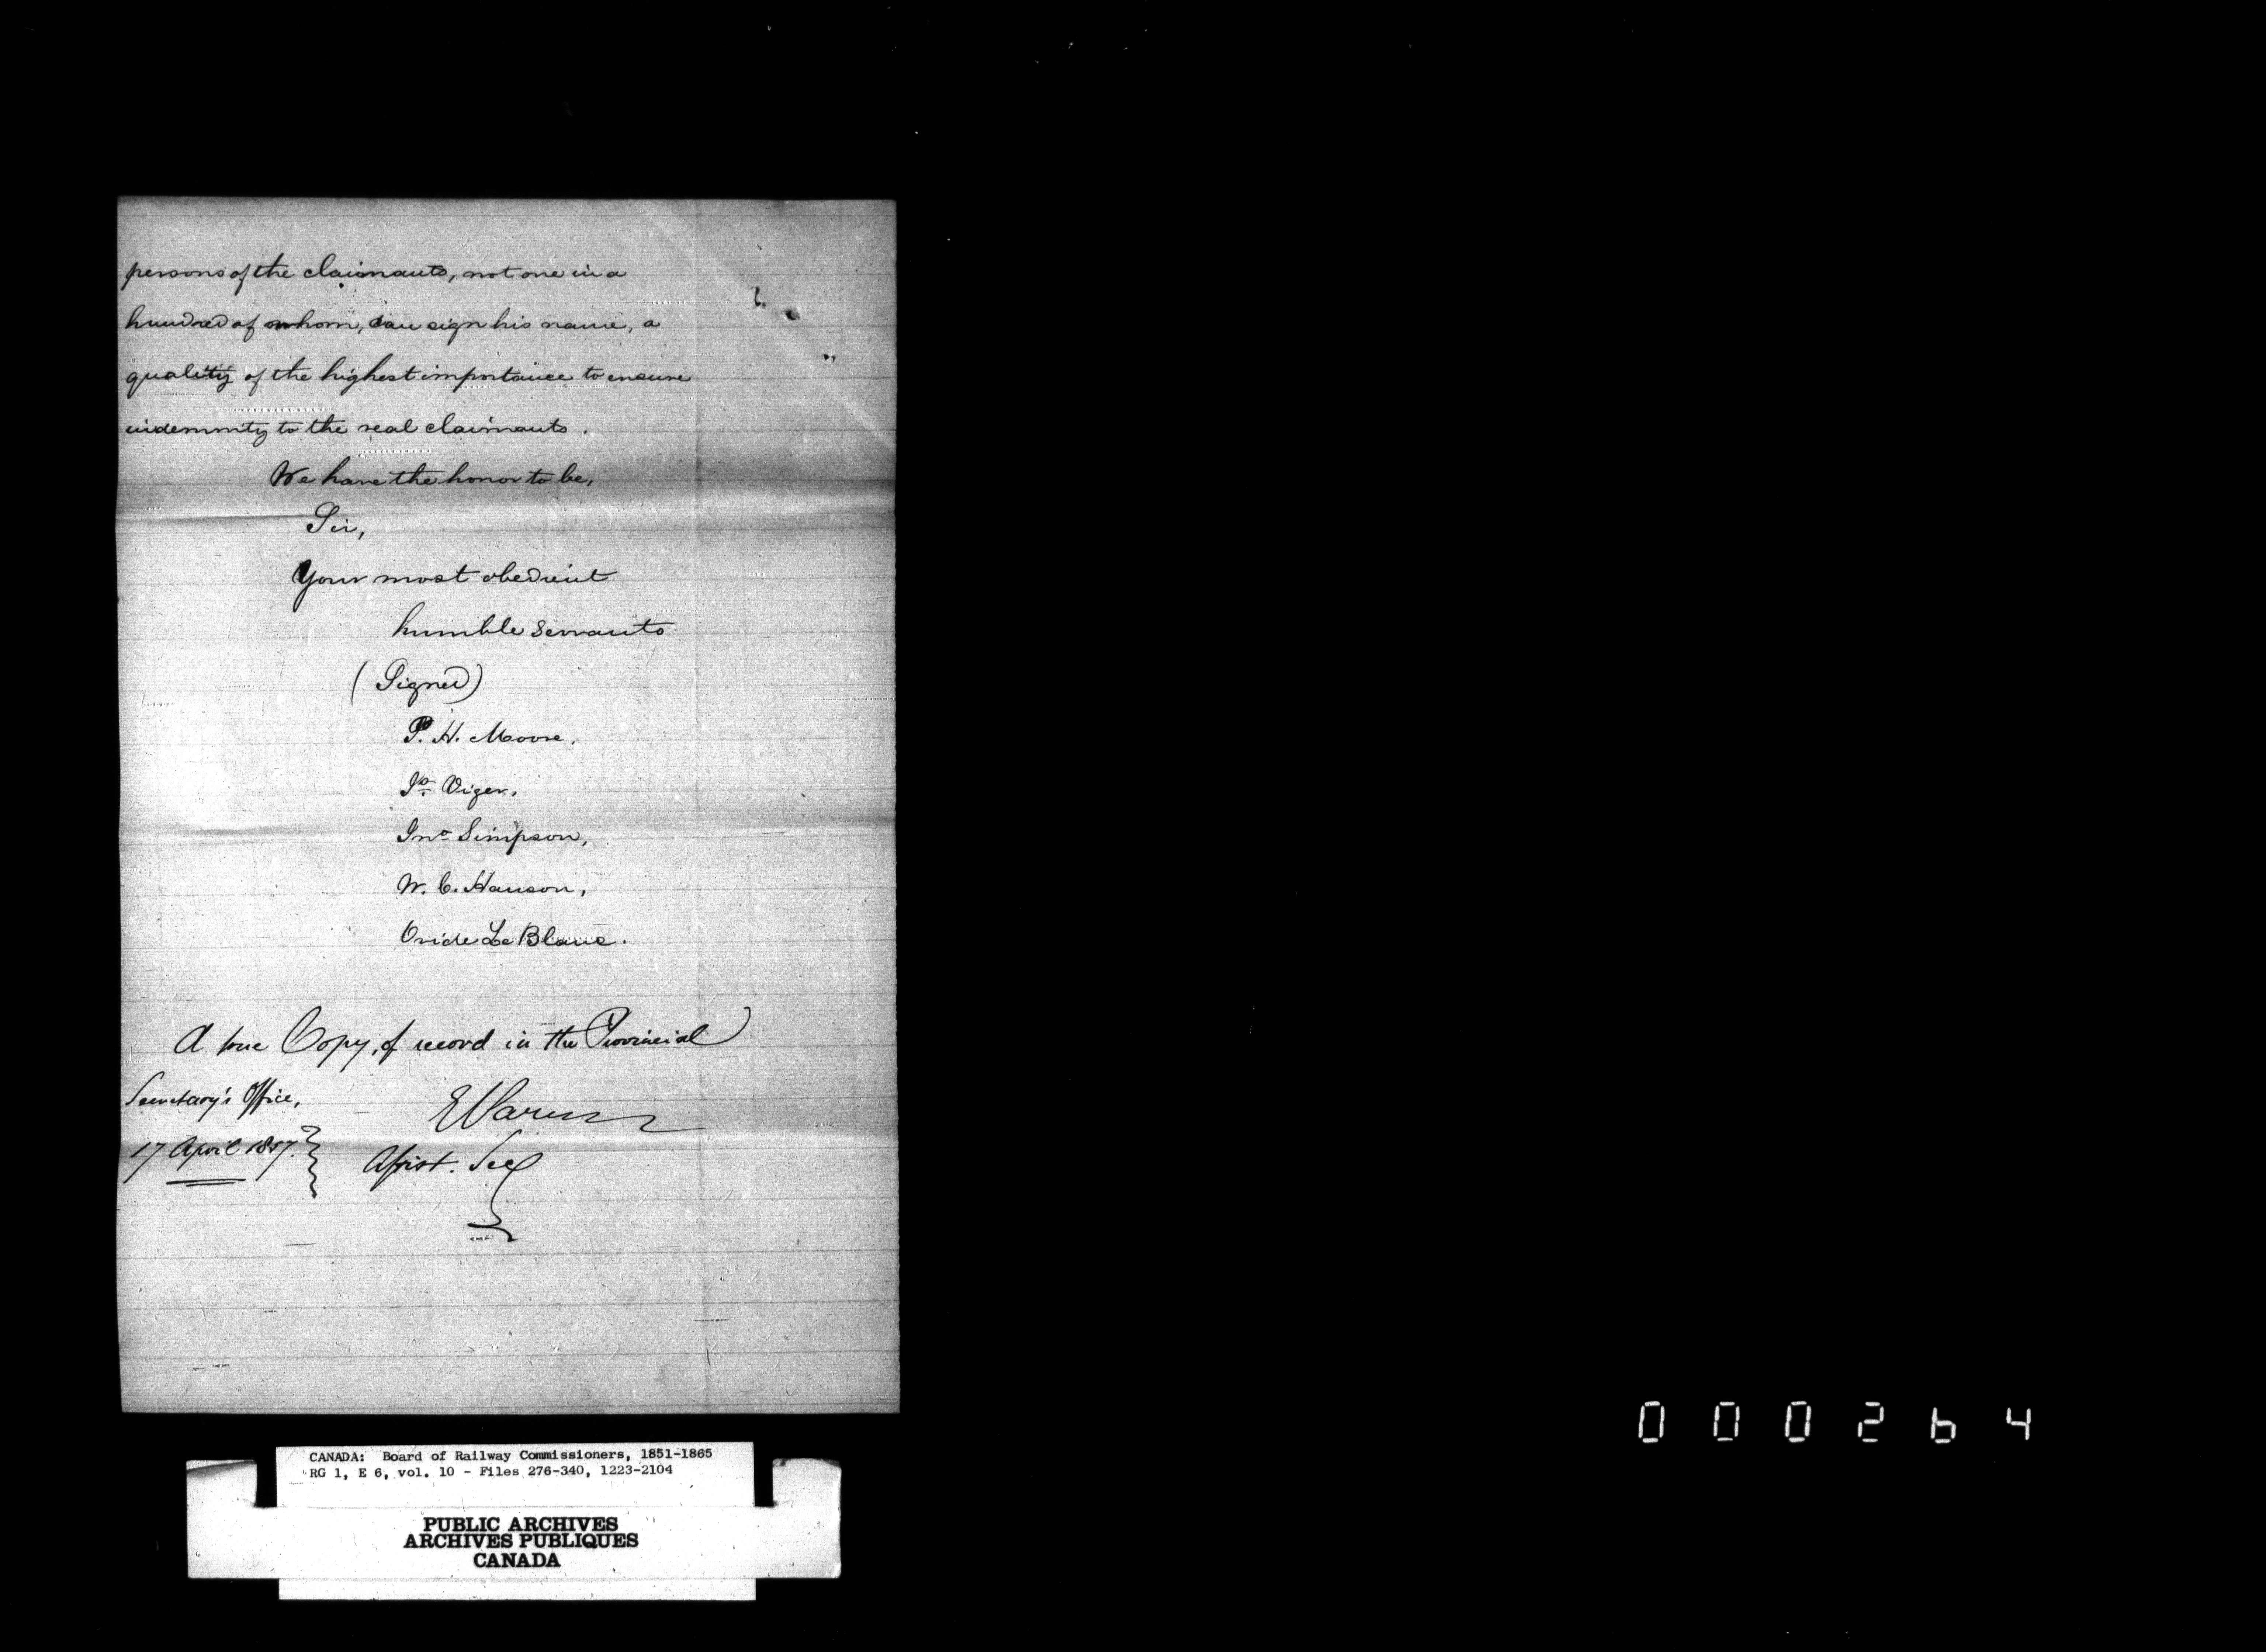 persons of the claimants, not one in a
hundred of whom, can sign his name, a
quality of the highest importance to ensure
indemnity to the real claimants.
We have the honor to be,
Sir,
Your most obedient
humble servants
(Signed)
P. H. Moore,
Js. Viger,
Jno Simpson,
W. C. Hanson,
Ovide Le Blanc.
A true Copy, of record in the Provincial
Secretary's Office,
17 April 1857.
Assist. Secy
000264
CANADA: Board of Railway Commissioners, 1851-1865
RG 1, E 6, vol. 10 - Files 276-340, 1223-2104
PUBLIC ARCHIVES
ARCHIVES PUBLIQUES
CANADA